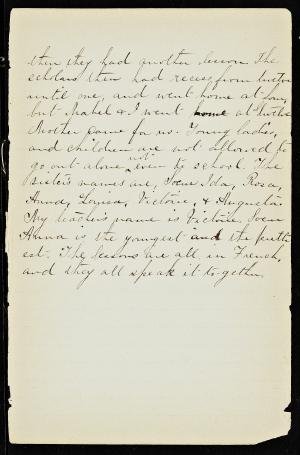 then they had another lesson. The
scholars then had recess from twelve
until one, and went home at four,
but Mabel & I went home at twelve
Mother came for us. Young ladies,
and children are not allowed to
go out alone, not even to school. The
sisters names are, Soeur Ida, Rosa,
Anna, Louisa, Victoire, & Augusta.
My teacher's name is Victoire, Soeur
Anna is the youngest and the pretti
est. The lessons are all in French,
and they all speak it together.